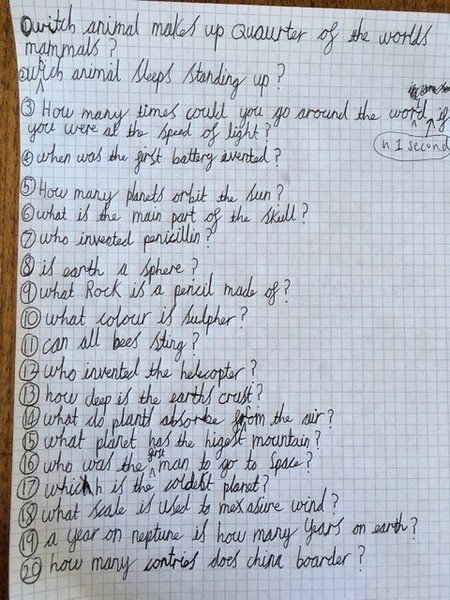 ① witch animal makes up Quaurter of the worlds
mammals?
② which animal sleeps standing up?
③ How many times could you go around the world if
you were at the speed of light?
n 1 second
④ when was the first battery invented?
⑤ How many planets orbit the sun?
⑥ what is the main part of the skull?
⑦ who invented penicillin?
⑧ is earth a sphere?
⑨ what Rock is a pencil made of?
⑩ what colour is sulpher?
⑪ can all bees sting?
⑫ who invented the helecopter?
⑬ how deep is the earths crust?
⑭ what do plants absorbe from the air?
⑮ what planet has the higest mountain?
⑯ who was the first man to go to space?
⑰ which is the coldest planet?
⑱ what scale is used to mexasure wind?
⑲ a year on neptune is how many years on earth?
⑳ how many contries does china boarder?